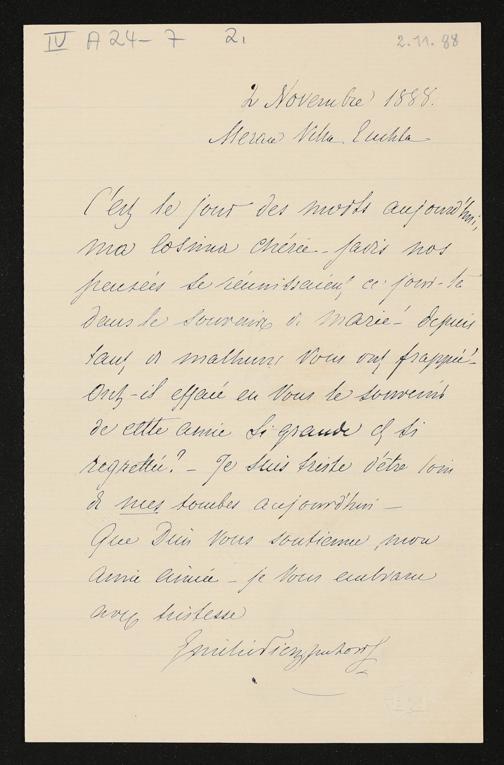 IV A 24-7 2.
2.11.88
2 Novembre 1888.
Meran Villa
C'est le jour des morts aujourd'hui,
ma Cosima chérie – jadis nos
pensées se réunissaient ce jour-là
dans le souvenir de Marie – depuis
tant de malheurs vous ont frappée –
Ont-il effacé en vous le souvenir
de cette amie si grande et si
regrettée? – Je suis triste d'être loin
de mes tombes aujourd'hui –
Que Dieu vous soutienne mon
amie aimée – je vous embrasse
avec tristesse